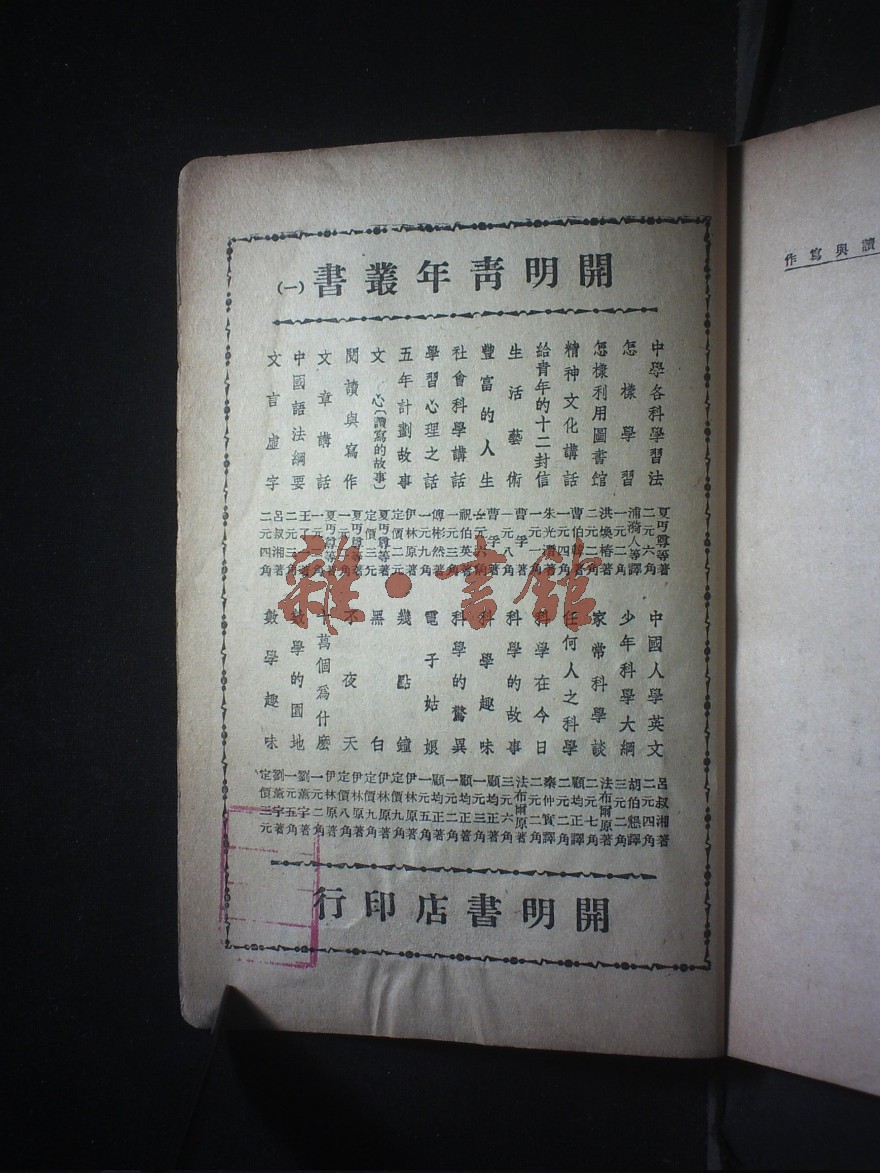 開明青年叢書(一)
中學各科學習法 夏丏尊等著 二元六角
怎樣學習 浦漪人等譯 一元二角
怎樣利用圖書館 洪煥椿著 二元二角
精神文化講話 曹伯韓著 一元四角
給青年的十二封信 朱光潛著 一元
生活藝術 曹孚著 一元八角
豐富的人生 曹孚著
社會科學講話 祝伯英著 一元三角
學習心理之話 傅彬然著 一元九角
五年計劃故事 伊林原著 定價二元
文心〔讀寫的故事〕 夏丏尊等著 定價三元
閱讀與寫作 夏丏尊等著 一元二角
文章講話 夏丏尊等著 一元二角
中國語法綱要 王了一著 二元三角
文言虛字 呂叔湘著 二元四角
中國人學英文 呂叔湘著 二元四角
少年科學大綱 胡伯懇譯 三元二角
家常科學談 法布爾原著 二元七角
任何人之科學 顧均正譯 二元二角
科學在今日 秦仲實譯 二元二角
科學的故事 法布爾原著 三元六角
科學趣味 顧均正著 一元三角
科學的驚異 顧均正著 一元二角
電子姑娘 顧均正著 一元五角
幾點鐘 伊林原著 定價九角
黑白 伊林原著 定價九角
不夜天 伊林原著 定價八角
十萬個爲什麽 伊林原著 一元二角
數學的園地 劉薰宇著 一元五角
數學趣味 劉薰宇著 定價三元
開明書店印行
讀與寫作
雜·書館